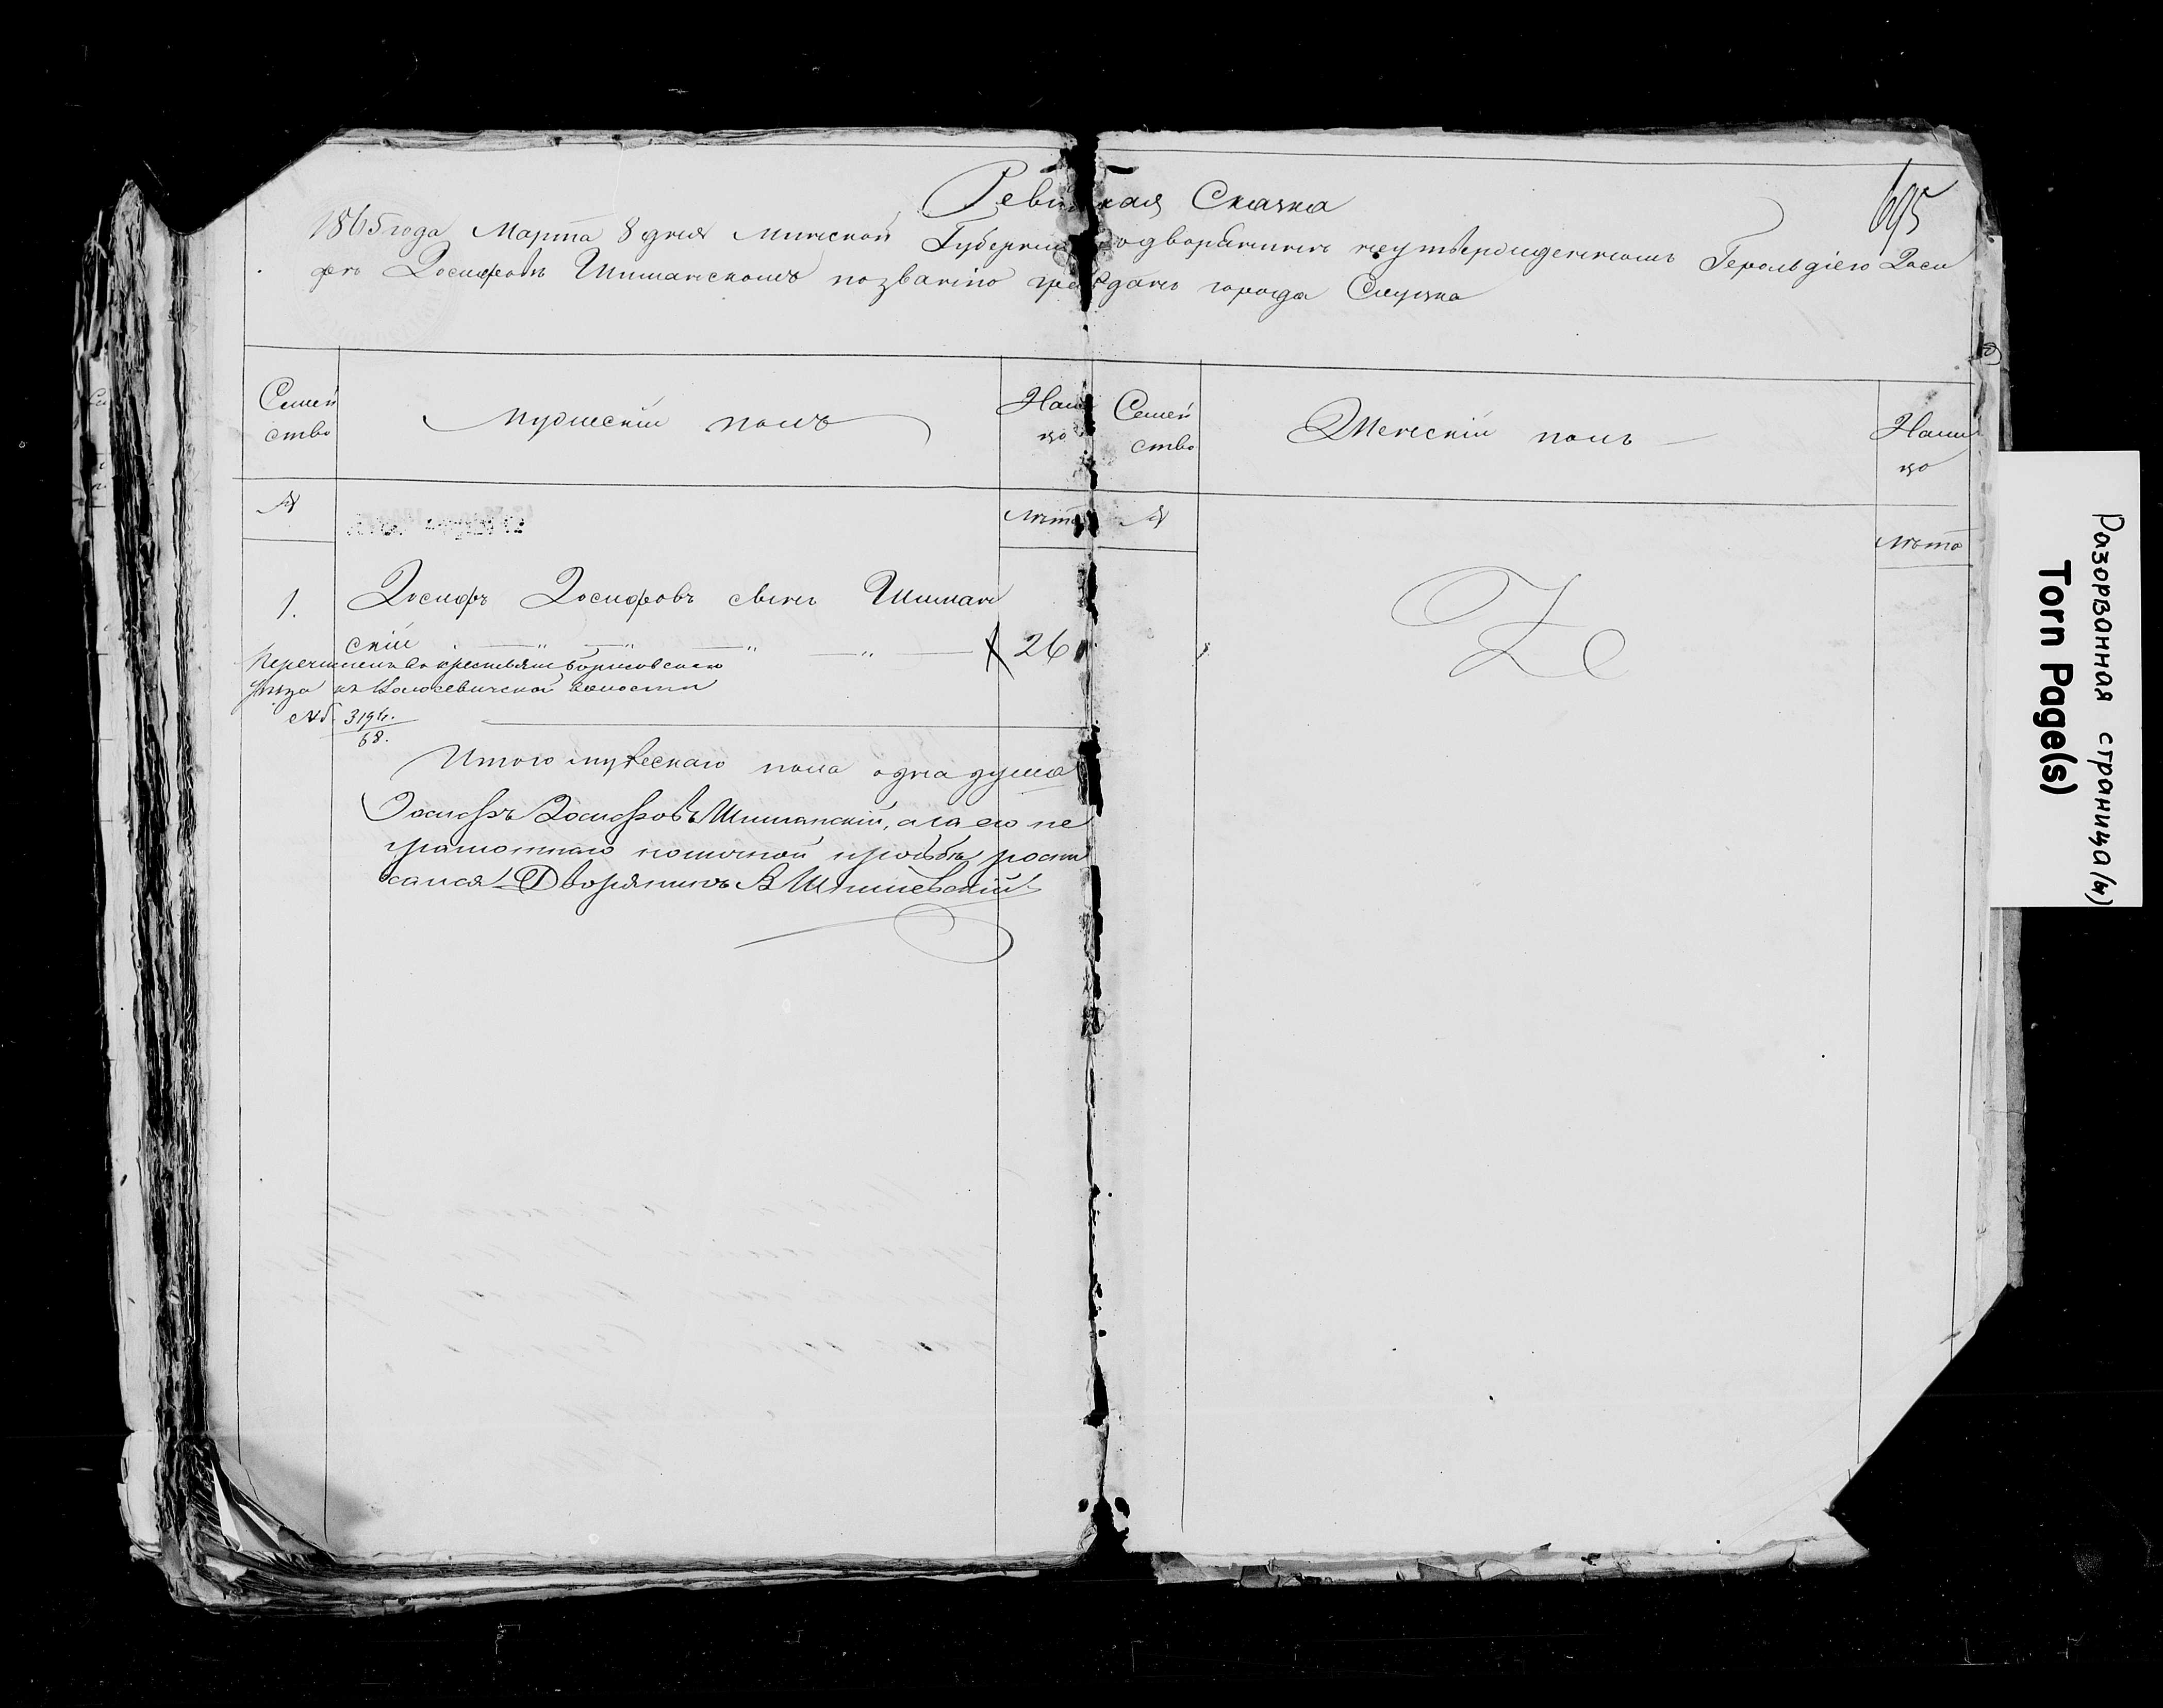 Ревизкая Сказка
695
1865 года Марта 8 дня Минской Губернии одворянинѣ неутвержденномъ Герольдіею Іоси
фѣ Іосифовѣ Шиманскомъ по званію гражданъ города Слуцка
Семей
ство
Мужескій полъ
Нали
цо
Семей
ство
Женскій полъ
Нали
цо
№
лѣта
№
лѣта
1.
Іосифъ Іосифовъ сынъ Шиман
скій
26
Перечисленъ въ крестьяне Борисовскаго
уѣзда волости
№
68.
Итого мужескаго пола одна душа
Іосифъ Іосифовъ Шиманскій, а за его не
грамотнаго личной прозьбѣ роспи
сался Дворянинъ А
Разорванная страница(ы)
Torn Page(s)